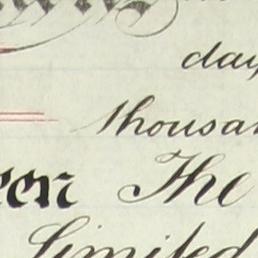 day
thousan
een The
Limited